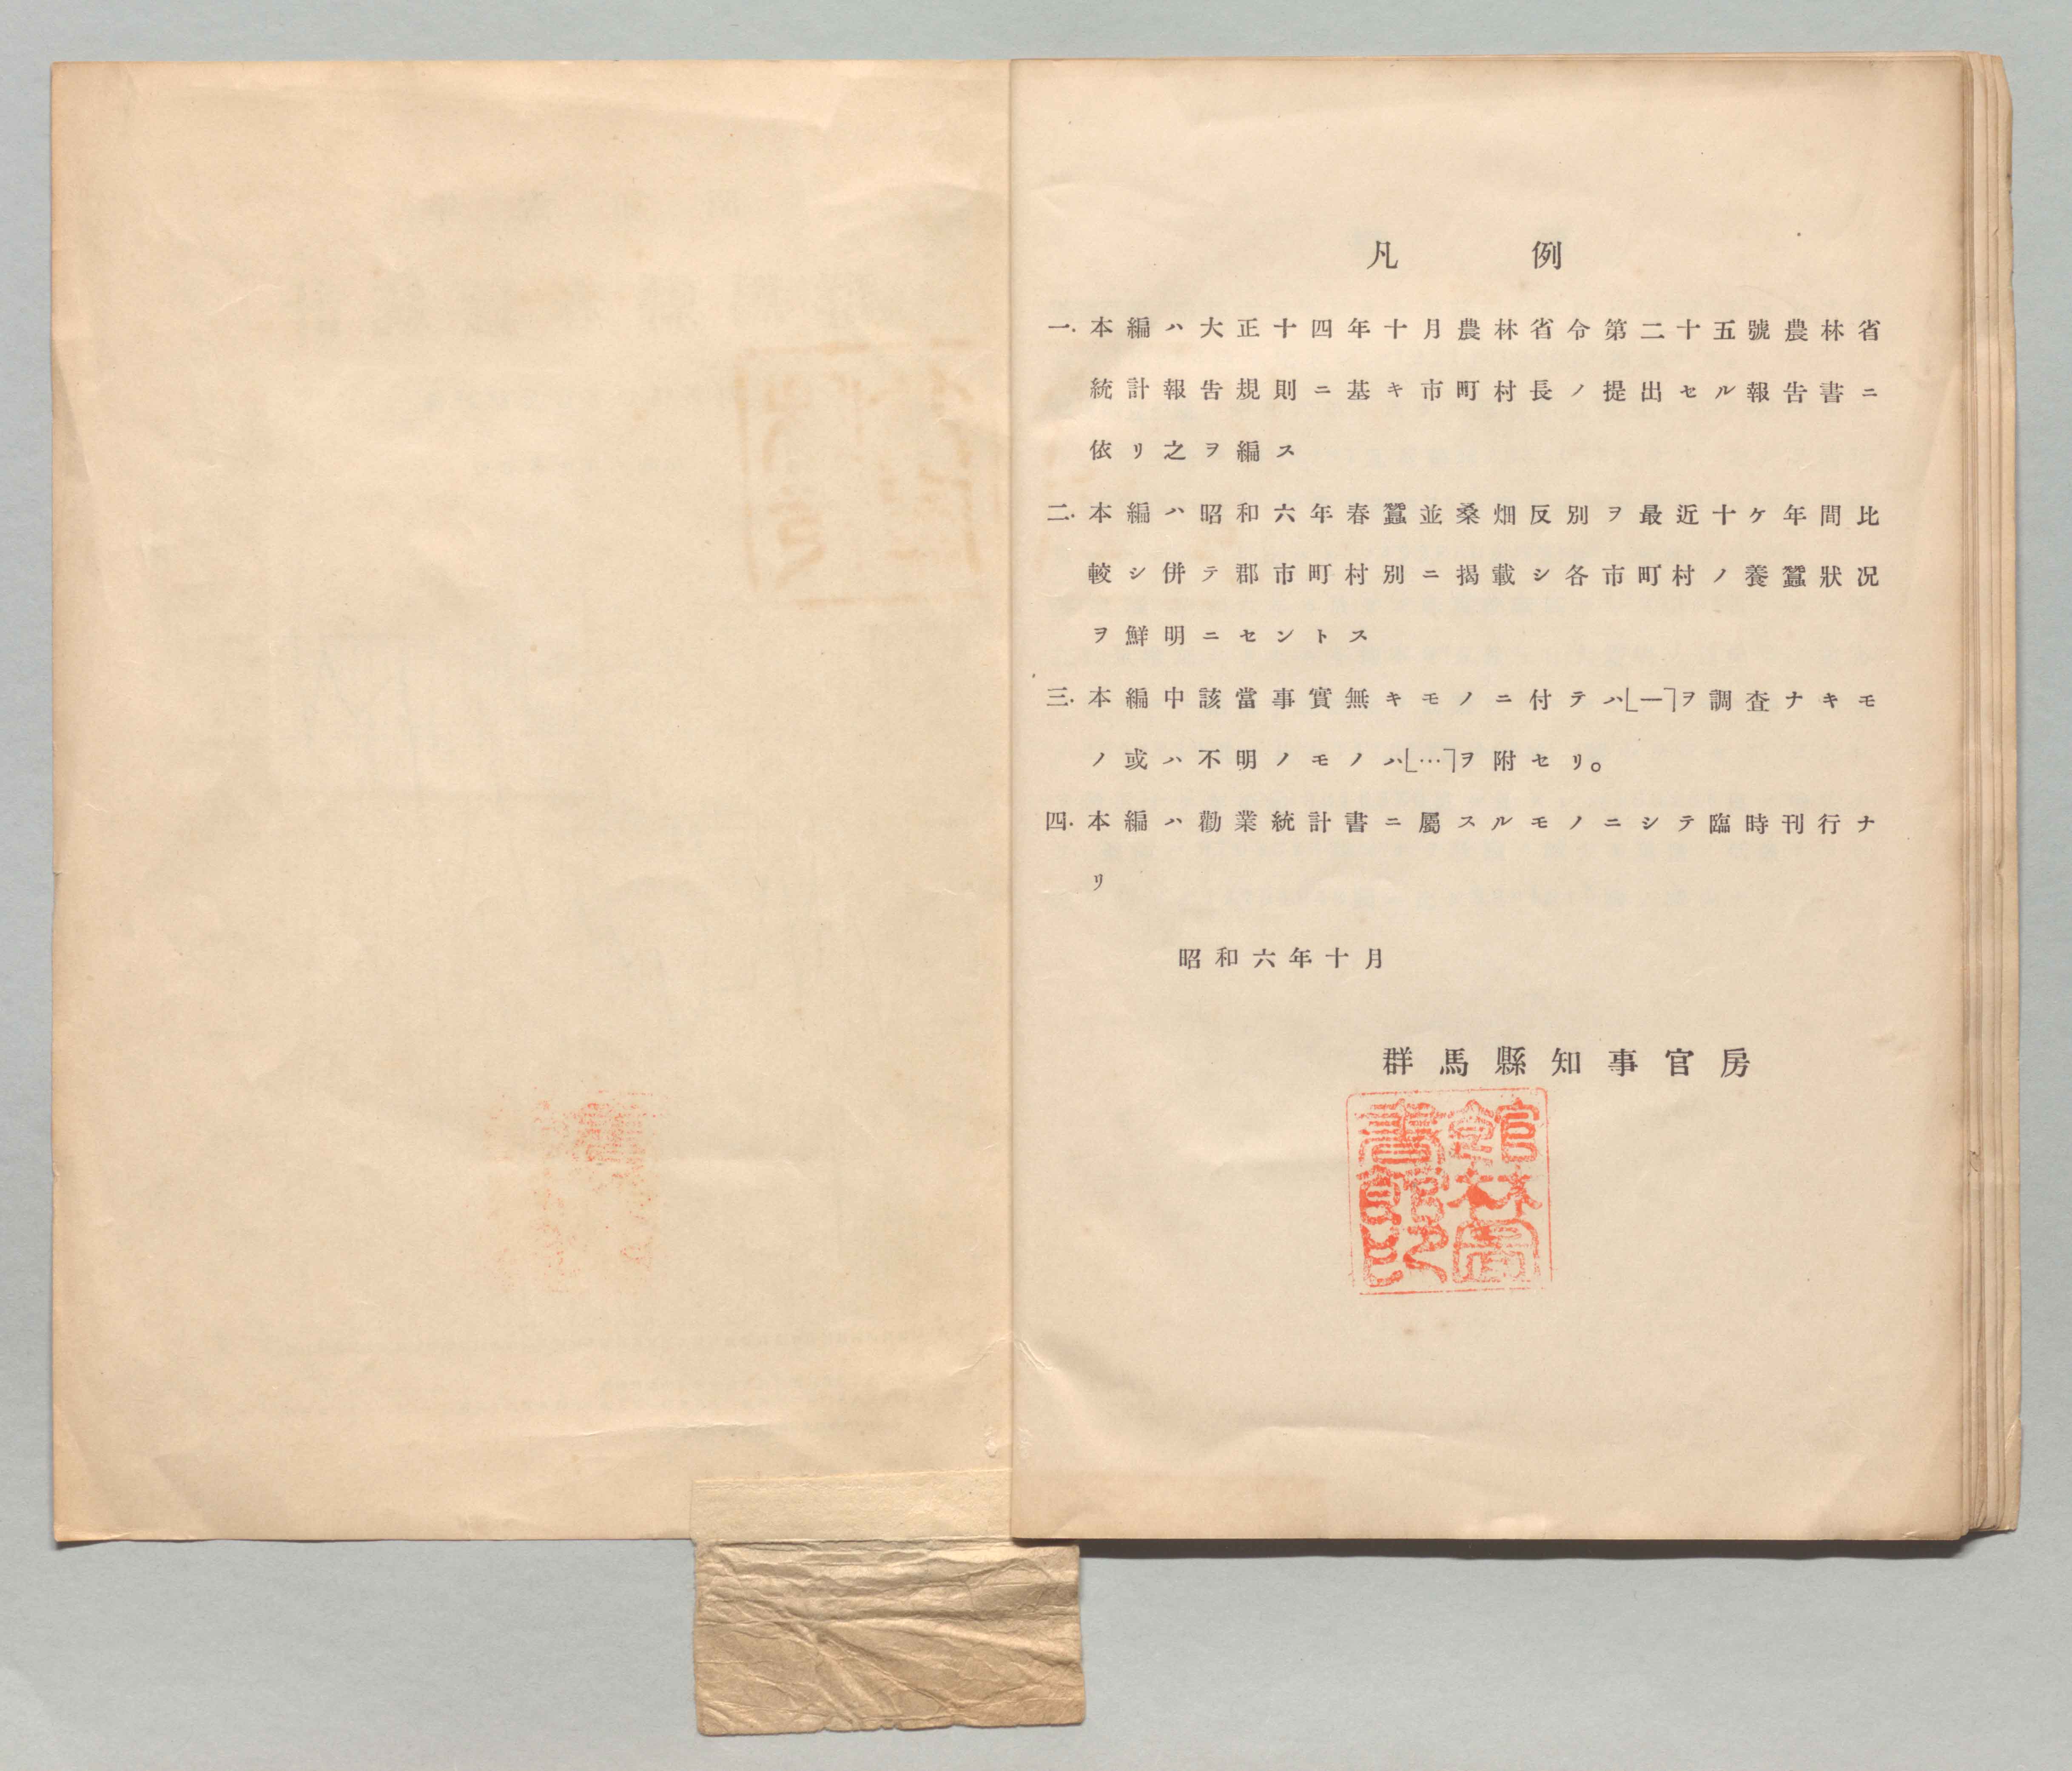 凡例
一.本編ハ大正十四年十月農林省令第二十五號農林省
統計報告規則ニ基キ市町村長ノ提出セル報告書ニ
依リ之ヲ編ス
二.本編ハ昭和六年春蠶並桑畑反別ヲ最近十ケ年間比
較シ併テ郡市町村別ニ揭載シ各市町村ノ養蠶狀況
ヲ鮮明ニセントス
三.本編中該當事實無キモノニ付テハ「―」ヲ調査ナキモ
ノ或ハ不明ノモノハ「…」ヲ附セリ。
四.本編ハ勸業統計書ニ屬スルモノニシテ臨時刊行ナ
リ
昭和六年十月
群馬縣知事官房
館林圖
書館印